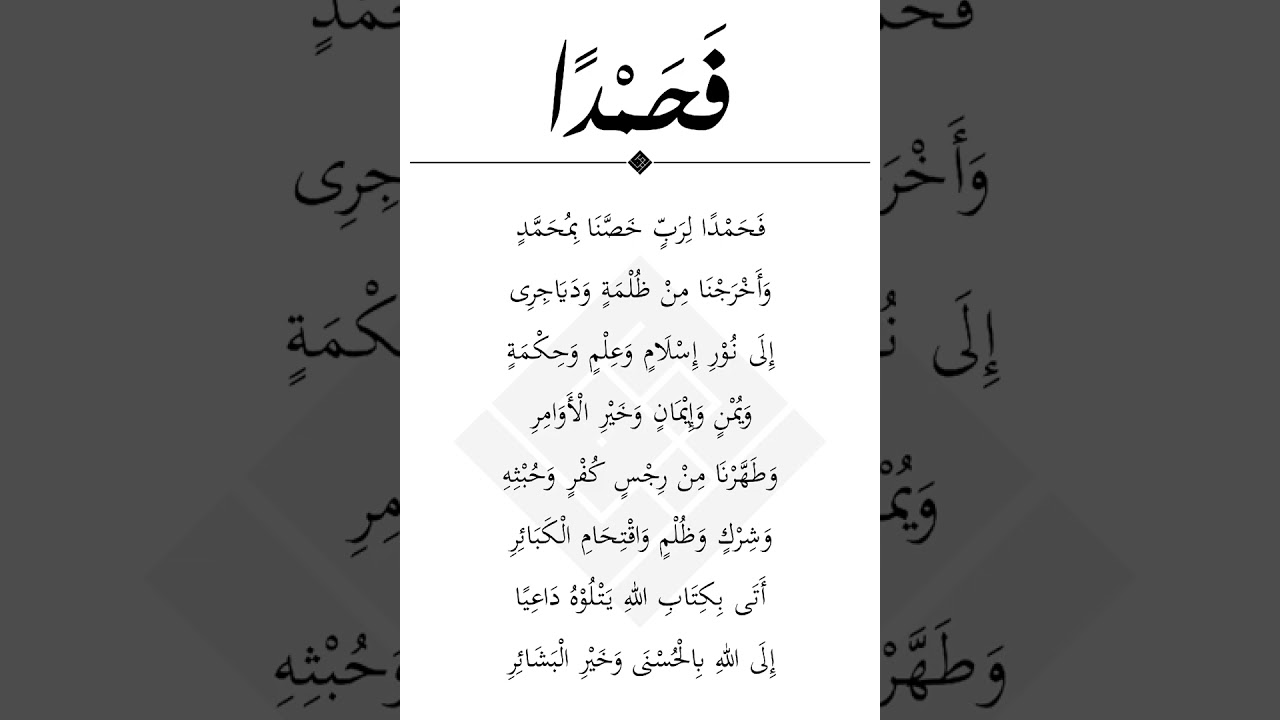 فَحَمْدًا
فَحَمْدًا لِرَبٍّ خَصَّنَا بِمُحَمَّدٍ
وَأَخْرَجْنَا مِنْ ظُلْمَةٍ وَدَيَاجِرِى
إِلَى نُوْرِ إِسْلَامٍ وَعِلْمٍ وَحِكْمَةٍ
وَيُمْنٍ وَإِيْمَانٍ وَخَيْرِ الْأَوَامِرِ
وَطَهَّرْنَا مِنْ رِجْسٍ كُفْرٍ وَحُبْثِهِ
وَشِرْكٍ وَظُلْمٍ وَاقْتِحَامِ الْكَبَائِرِ
أَتَى بِكِتَابِ اللهِ يَتْلُوْهُ دَاعِيًا
إِلَى اللهِ بِالْحُسْنَى وَخَيْرِ الْبَشَائِرِ